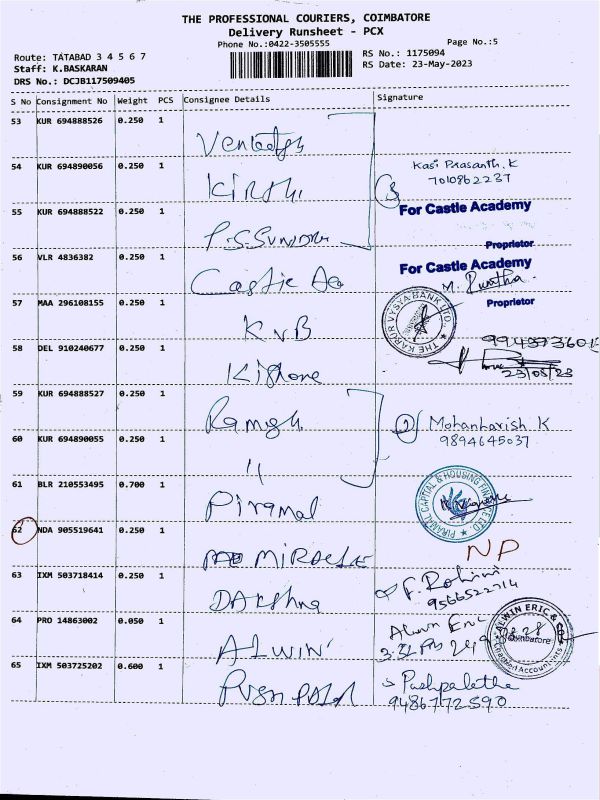 THE PROFESSIONAL COURIERS, COIMBATORE
Delivery Runsheet - PCX
Phone No.:0422-3505555
Page No.:5
Route: TATABAD 3 4 5 6 7
RS No.: 1175094
Staff: K.BASKARAN
RS Date: 23-May-2023
DRS No.: DCJB117509405
S No Consignment No Weight PCS Consignee Details Signature
53 KUR 694888526 0.250 1
54 KUR 694890056 0.250 1 Kasi Prasanth.K
7010862237
55 KUR 694888522 0.250 1 For Castle Academy
Proprietor
56 VLR 4836382 0.250 1 For Castle Academy
Proprietor
57 MAA 296108155 0.250 1 KVB
THE KARUR VYSYA BANK LTD.
58 DEL 910240677 0.250 1 Kishore
23/05/23
59 KUR 694888527 0.250 1 Ramesh
Mohanharish K
9894645037
60 KUR 694890055 0.250 1 "
61 BLR 210553495 0.700 1 Piramal
PIRAMAL CAPITAL & HOUSING FINANCE LTD.
62 NDA 905519641 0.250 1 MIRACLE NP
63 IXM 503718414 0.250 1 Darshna F. Rohini
9566522714
64 PRO 14863002 0.050 1 ALWIN Alwin Eric
ALWIN ERIC & CO
Coimbatore
Chartered Accountants
65 IXM 503725202 0.600 1 S Pushpalatha
9486772590